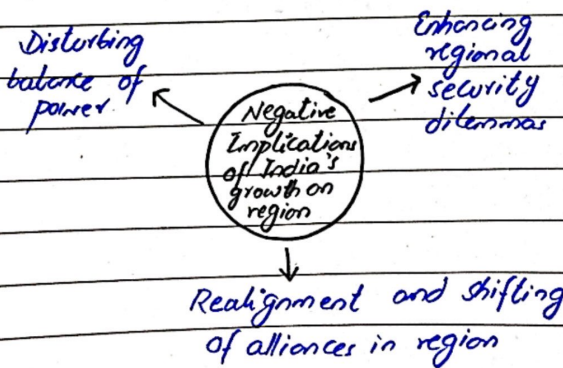 Disturbing
balance of
power
Negative
Implications
of India's
growth on
region
Enhancing
regional
security
dilemmas
Realignment and shifting
of alliances in region